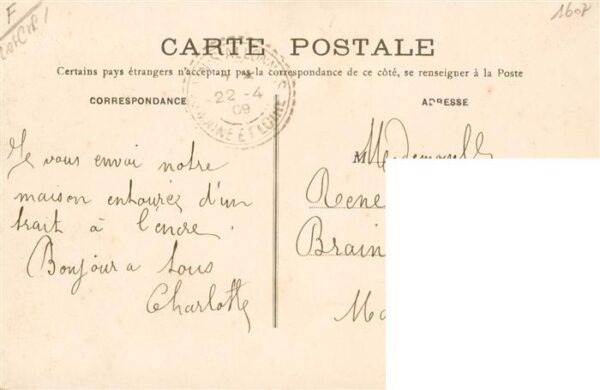 F
1607
CARTE POSTALE
Certains pays étrangers n'acceptant pas la correspondance de ce côté, se renseigner à la Poste
CORRESPONDANCE
ADRESSE
22 - 4
09
MAINE ET LOIRE
Je vous envoi notre
maison entourée d'un
trait à l'encre.
Bonjour a tous
Charlotte
Mademoiselle
Rene
Brain